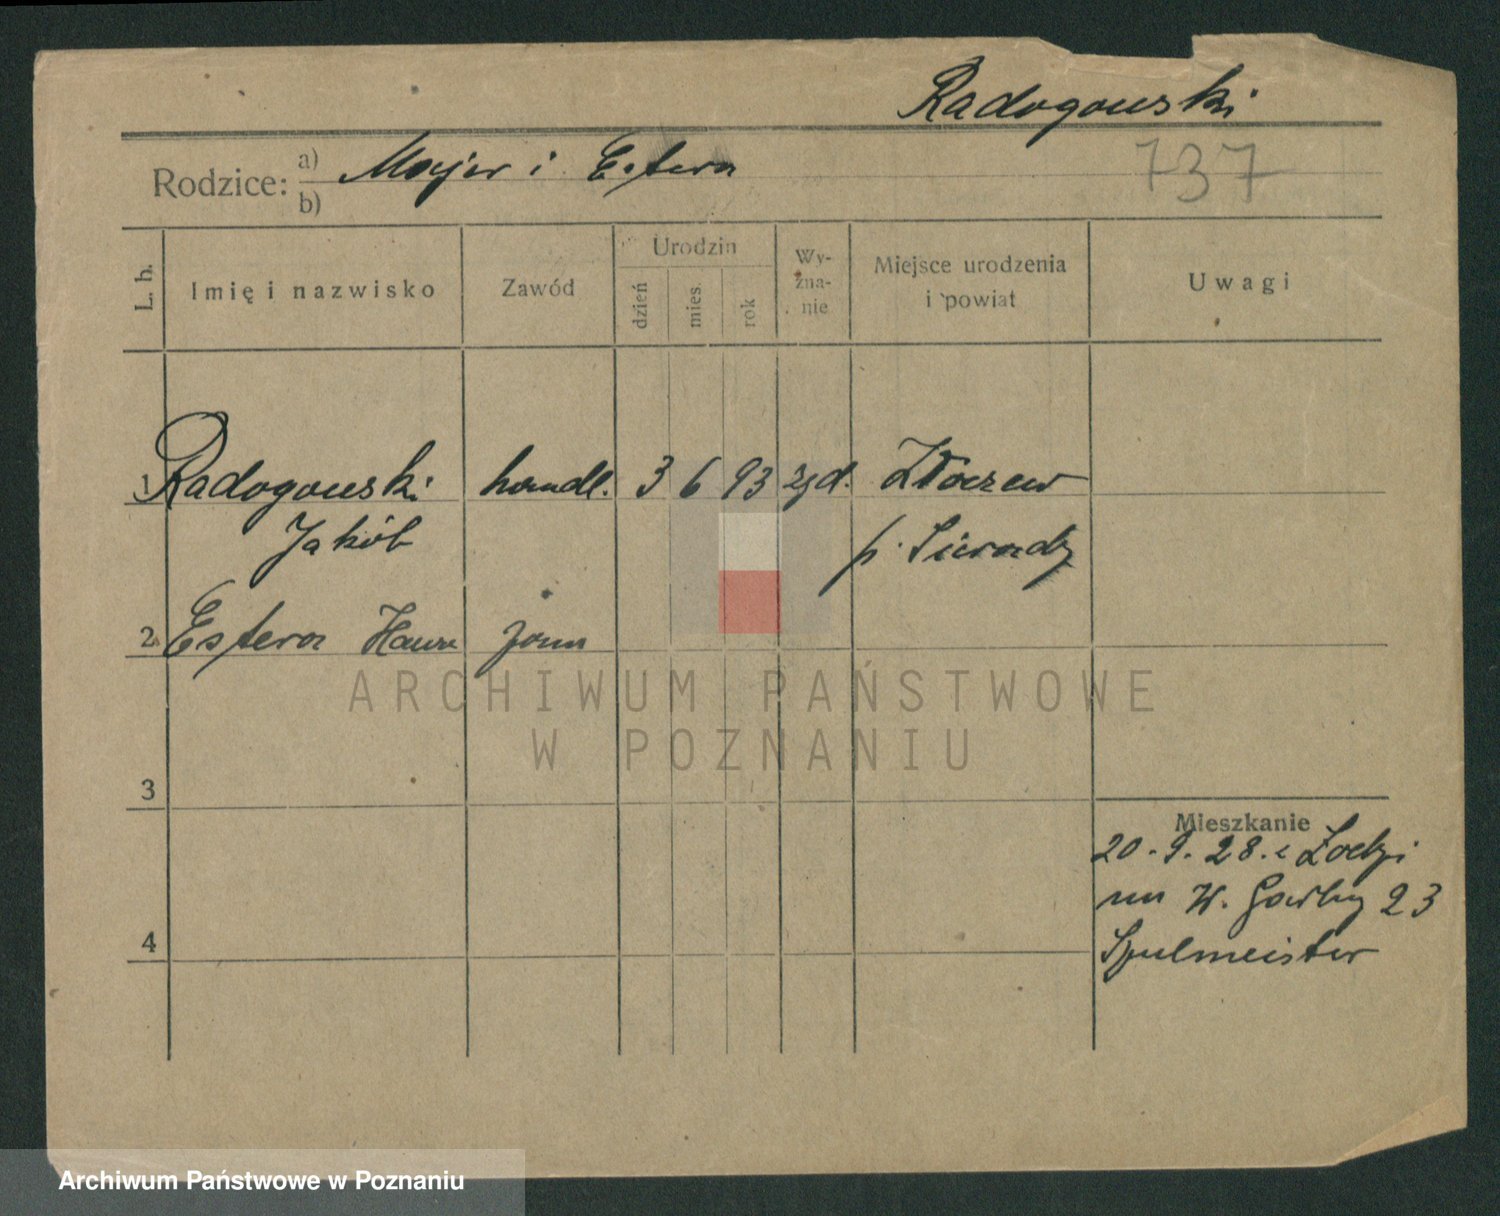 Radogowski
737
Rodzice: a) Majer i Estera
b)
L. b. Imię i nazwisko Zawód Urodzin dzień mies. rok Wy-zna-nie Miejsce urodzenia i powiat Uwagi
1 Radogowski handl. 3 6 93 żyd. Złoczew
Jakób p. Sieradz
2 Estera żona
3
Mieszkanie
20.9.28. z Łodzi
na W. Garbary 23
4
Spulmeister
ARCHIWUM PAŃSTWOWE
W POZNANIU
Archiwum Państwowe w Poznaniu